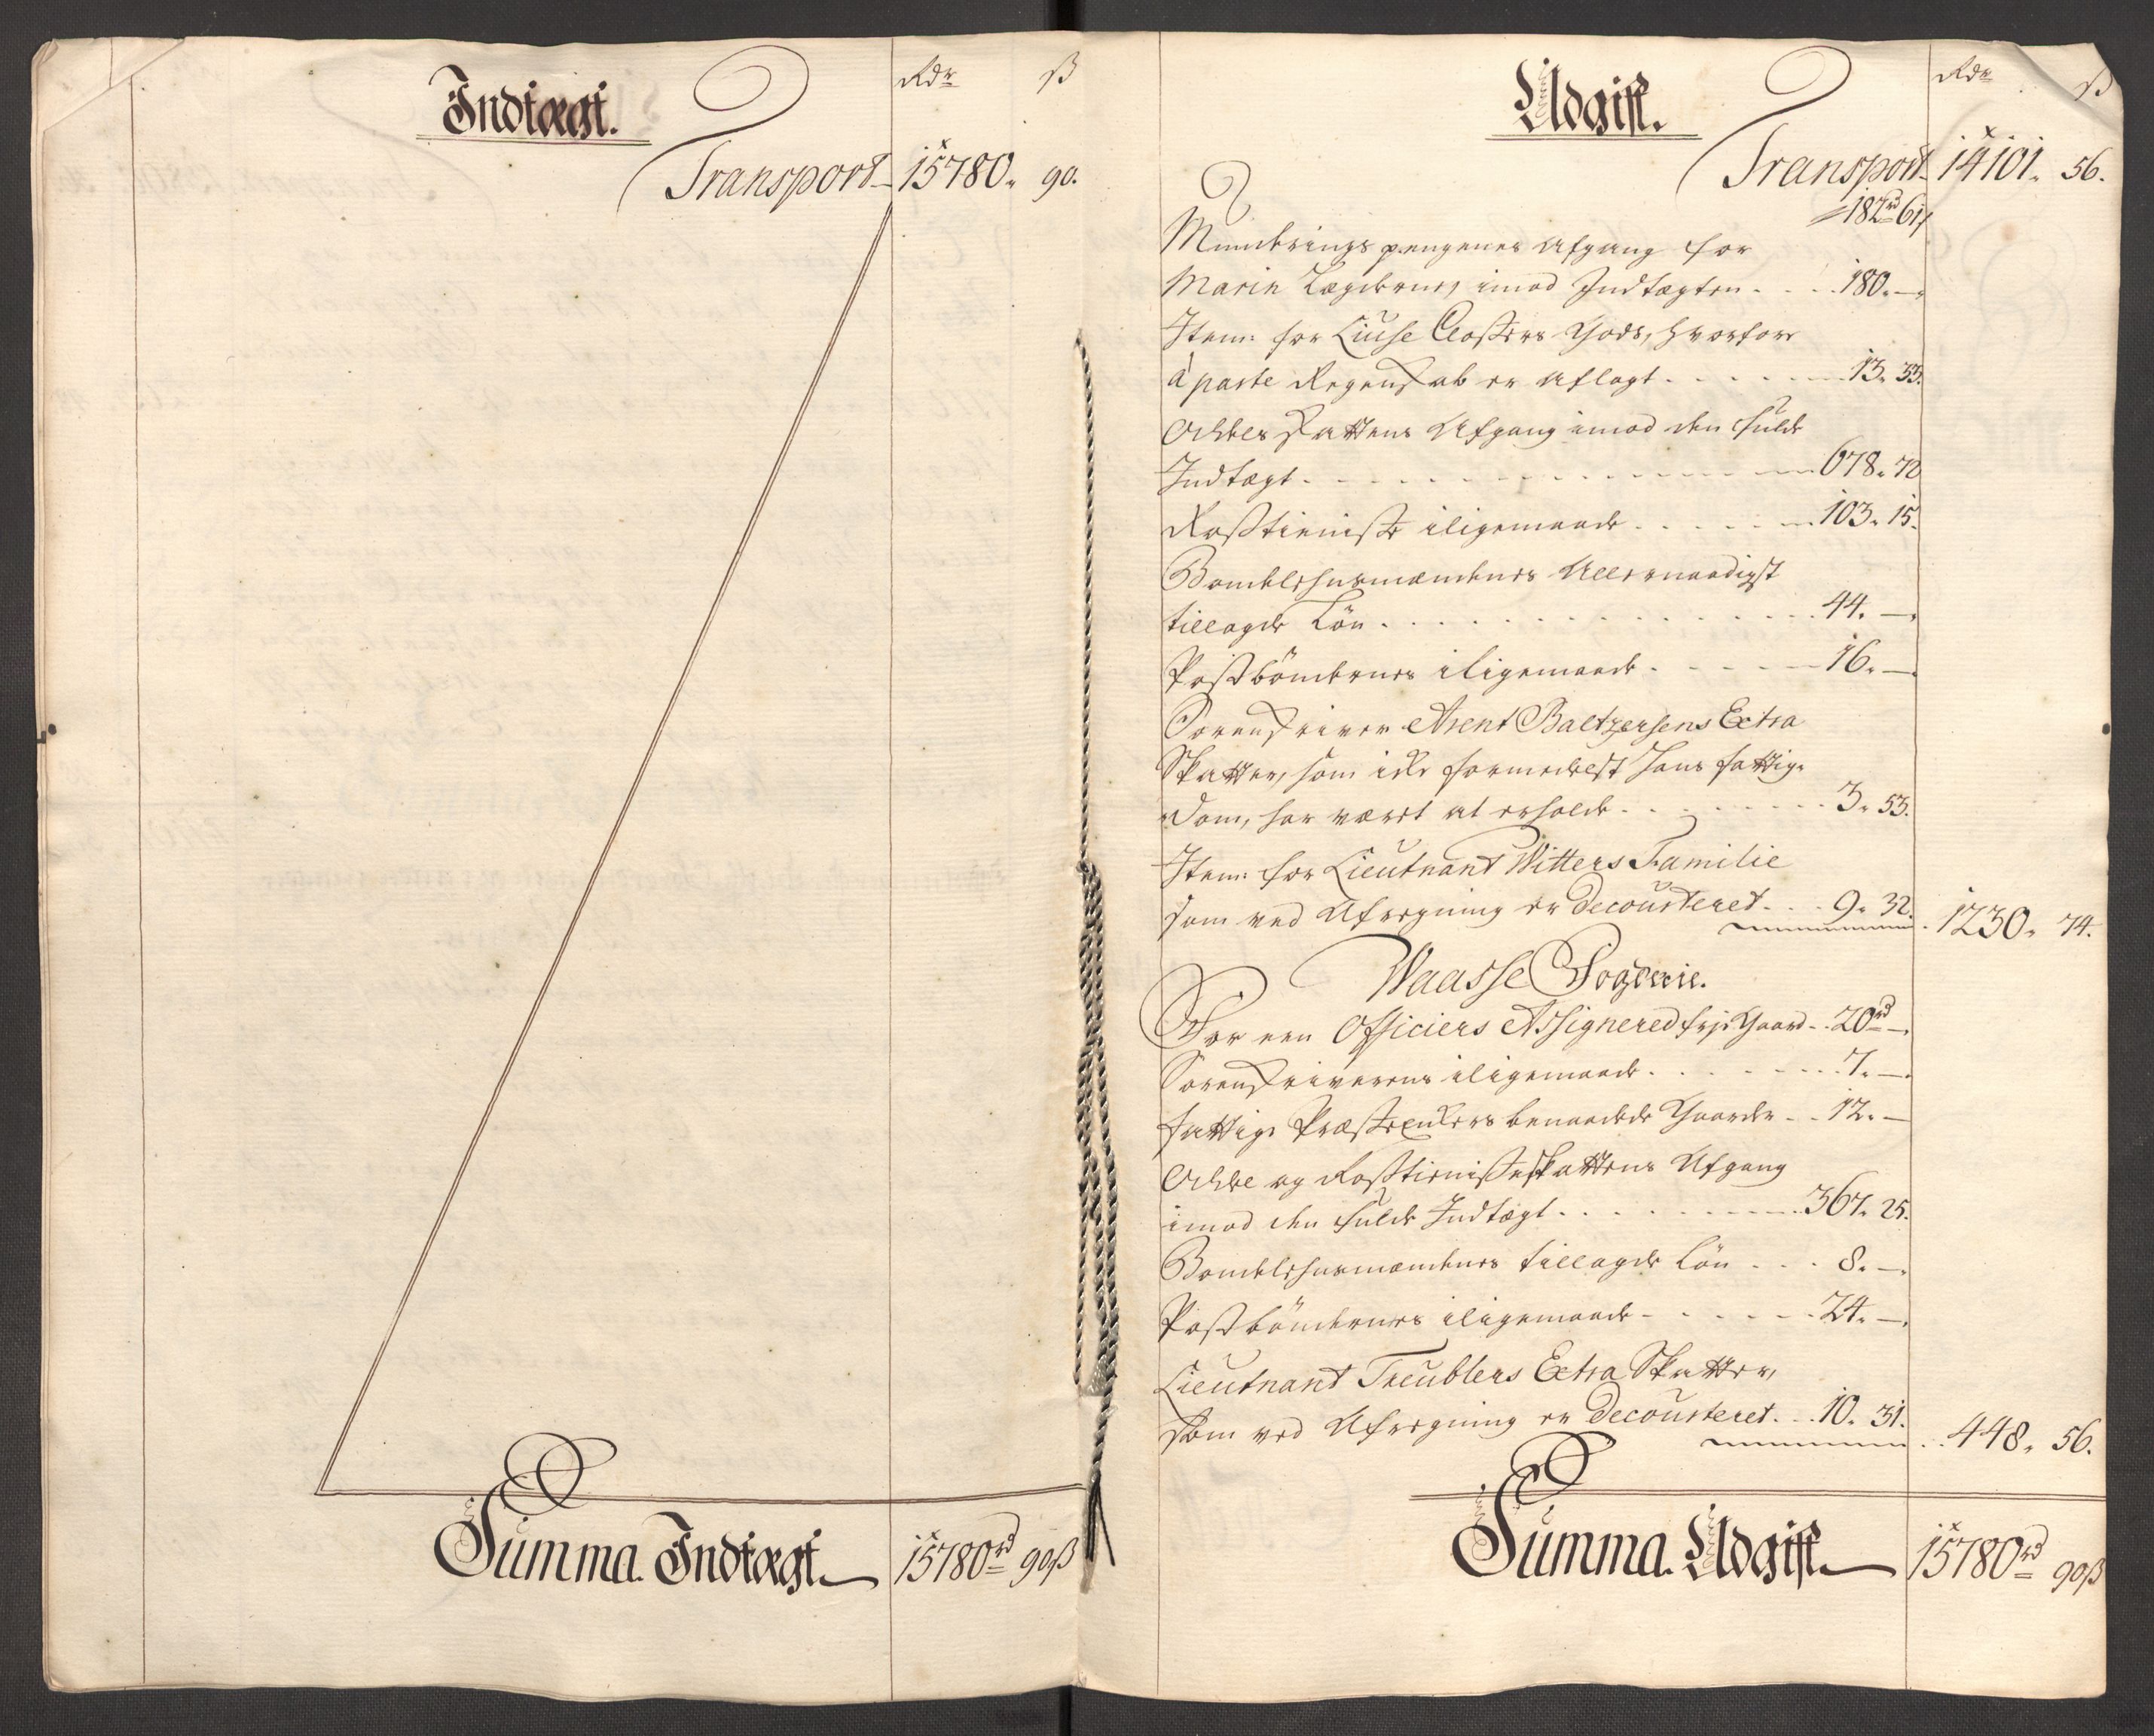 Indtægt.
Rdr ß
Transport 15780. 90.
Summa Indtægt 15780rd 90ß
Udgift.
Rdr ß
Transport 14101. 56.
182rd 61
Munderings pengenes Afgang for
Marin Lægderne, imod Indtægten 180. —
Item: for Liuse Closters Gods, hvorfore
à parte Regenskab er aflagt 13. 33.
Odels skattens Afgang imod den fulde
Indtægt 678. 72
Rosztieniste iligemaade 103. 15.
Bombleshusmændenes Allernaadigst
tillagde Løn 44. —
Postbøndernes iligemaade 16. —
Sorenskriver Arent Baltzersens Extra
Skatter, som icke formedelst hans fattig-
dom, har været at erholde 3. 53.
Item: for Lieutnant Witters Familie
som ved Afregning er Decourteret 9. 32. 1230. 74.
Waasse Fogderie.
For een Officiers Assignered frj: Gaard 20rd —
Sorenskriverens iligemaade 7. —
fattige Præsteenkers benaadede Gaarder 12. —
Odel og Rosztienisteskattens Afgang
imod den fulde Indtægt 367. 25.
Bombleshusmændenes tillagde Løn 8. —
Postbøndernes iligemaade 24. —
Lieutnant Treublers Extra Skatter,
som ved Afregning er Decourteret 10. 31. 448. 56.
Summa Udgift 15780rd 90ß